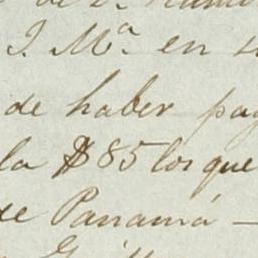 J. Mª. en
de haber pag
la $85 los que
de Panamá —